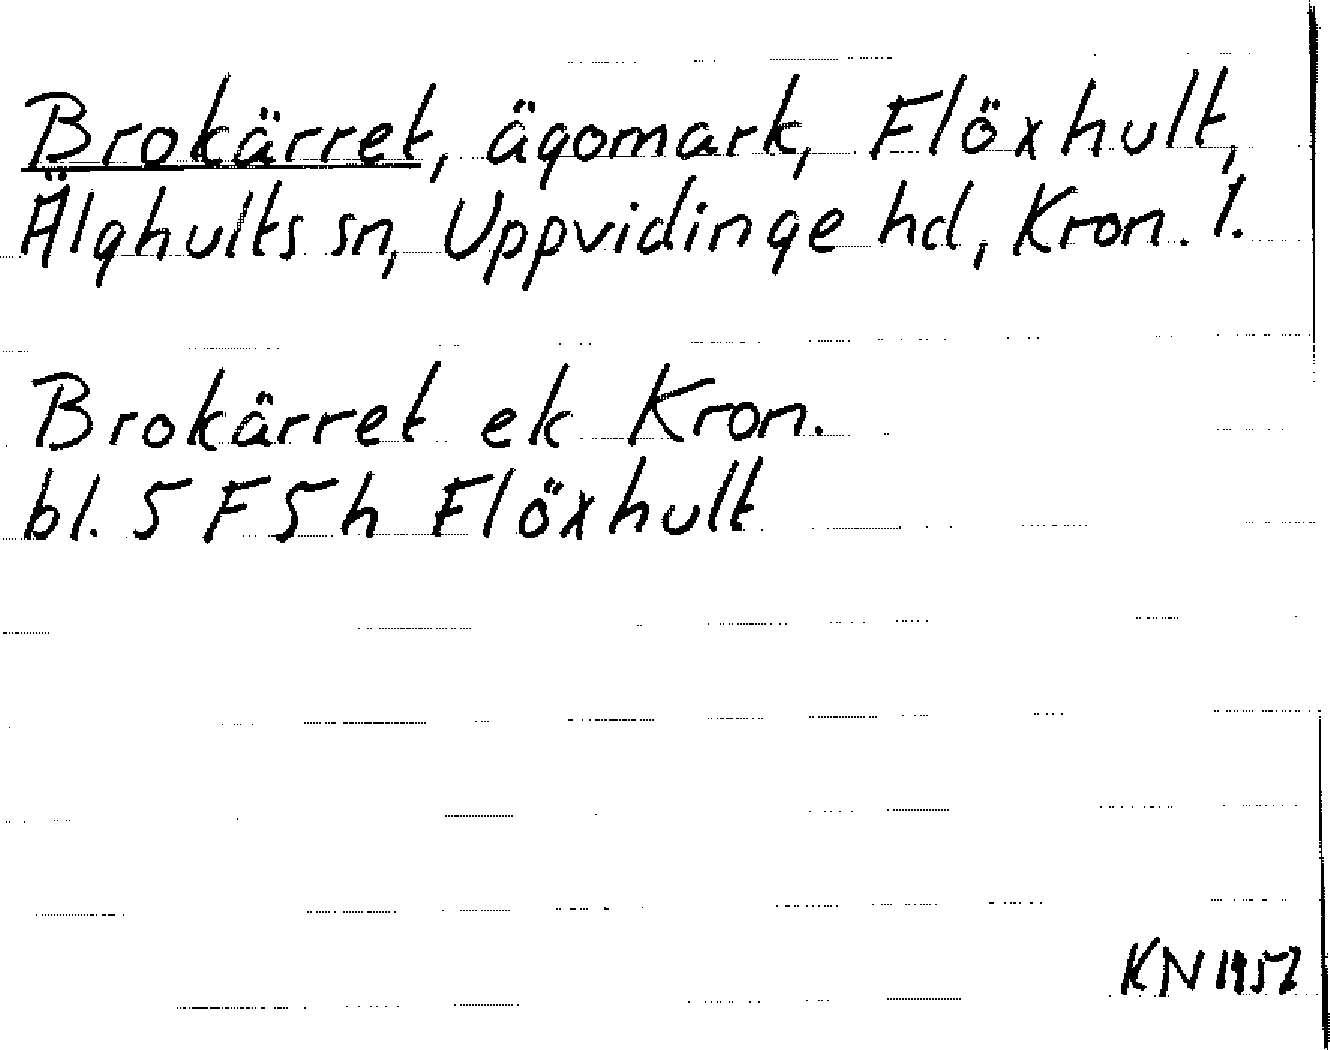 Brokärret, ägomark, Flöxhult,
Älghults sn, Uppvidinge hd, Kron. l.
Brokärret ek Kron.
bl. 5 F 5 h Flöxhult
KN 1952